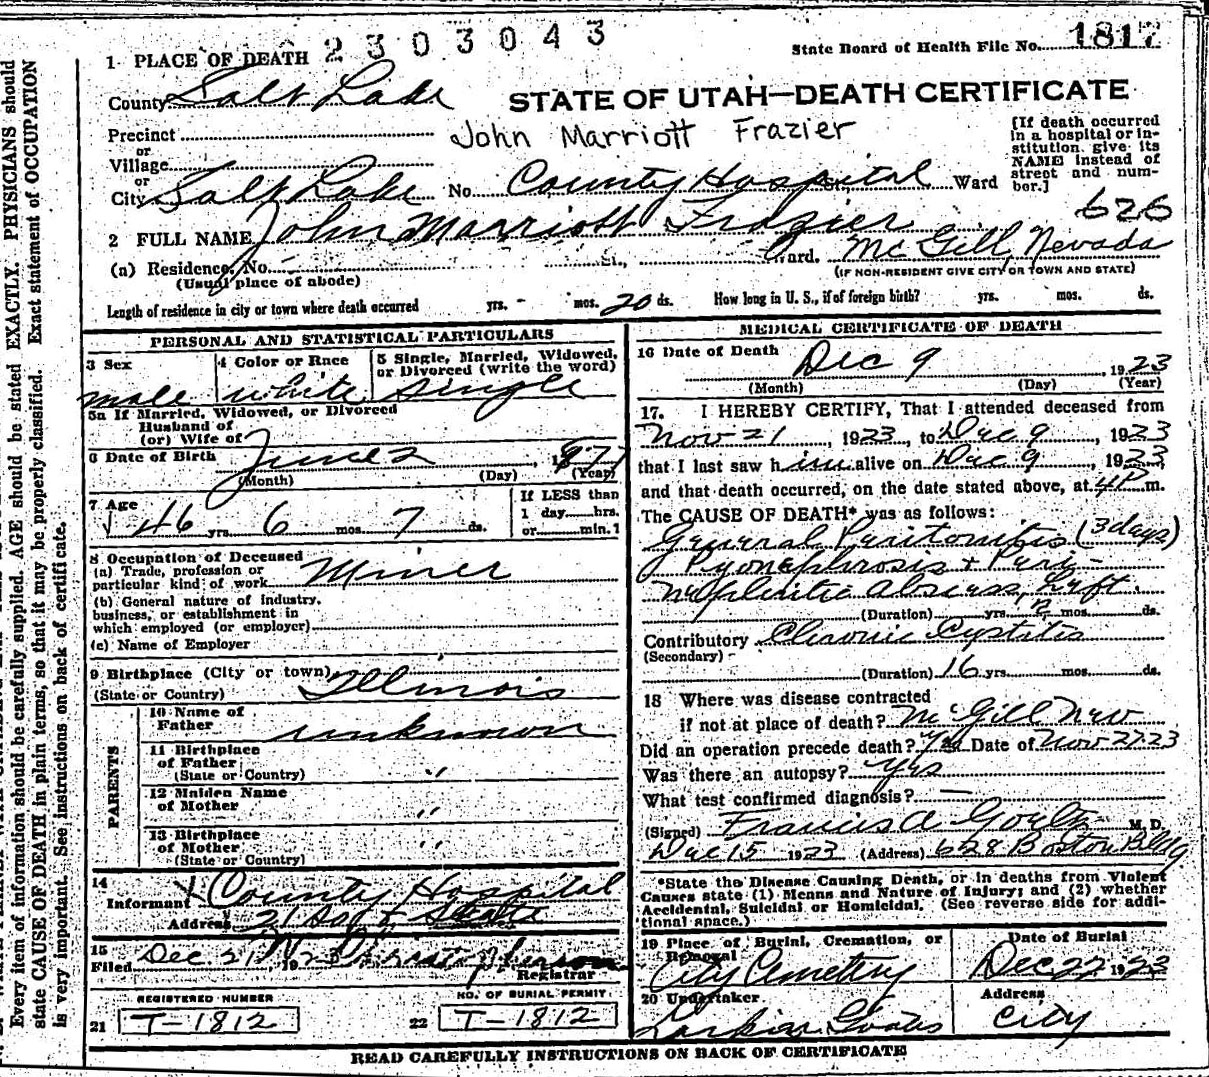 2303043
State Board of Health File No. 1817
1 PLACE OF DEATH
County Salt Lake
STATE OF UTAH—DEATH CERTIFICATE
Precinct
John Marriott Frazier
or
Village
or
City Salt Lake No. County Hospital St., Ward
[If death occurred
in a hospital or in-
stitution, give its
NAME instead of
street and num-
ber.]
626
2 FULL NAME John Marriott Frazier
(a) Residence. No. - St., Ward. McGill, Nevada
(Usual place of abode)
(IF NON-RESIDENT GIVE CITY OR TOWN AND STATE)
Length of residence in city or town where death occurred yrs. - mos. 20 ds. How long in U. S., if of foreign birth? yrs. mos. ds.
PERSONAL AND STATISTICAL PARTICULARS
3 Sex
male
4 Color or Race
white
5 Single, Married, Widowed,
or Divorced (write the word)
single
5a If Married, Widowed, or Divorced
Husband of
(or) Wife of
6 Date of Birth June 2, 1877
(Month) (Day) (Year)
7 Age
46 yrs. 6 mos. 7 ds.
If LESS than
1 day......hrs.
or......min.1
8 Occupation of Deceased
(a) Trade, profession or
particular kind of work Miner
(b) General nature of industry,
business, or establishment in
which employed (or employer)
(c) Name of Employer
9 Birthplace (City or town)
(State or Country) Illinois
PARENTS
10 Name of
Father unknown
11 Birthplace
of Father
(State or Country) "
12 Maiden Name
of Mother "
13 Birthplace
of Mother "
(State or Country)
14
Informant County Hospital
Address 21 So & State
15
Filed Dec 21, 1923
Registrar
REGISTERED NUMBER
21 T-1812
NO. OF BURIAL PERMIT
22 T-1812
MEDICAL CERTIFICATE OF DEATH
16 Date of Death Dec 9, 1923
(Month) (Day) (Year)
17. I HEREBY CERTIFY, That I attended deceased from
Nov 21, 1923, to Dec 9, 1923
that I last saw him alive on Dec 9, 1923,
and that death occurred, on the date stated above, at 4P m.
The CAUSE OF DEATH* was as follows:
General Peritonitis (3 days)
Pyonephrosis + Peri-
nephritic abscess, Left.
(Duration) yrs. 2 mos. ds.
Contributory Chronic Cystitis
(Secondary)
(Duration) 16 yrs. mos. ds.
18 Where was disease contracted
if not at place of death? McGill Nev
Did an operation precede death? Yes Date of Nov 27 23
Was there an autopsy? Yes
What test confirmed diagnosis? —
(Signed) Francis A M. D.
Dec 15 1923 (Address) 628 Boston Bldg
*State the Disease Causing Death, or in deaths from Violent
Causes state (1) Means and Nature of Injury; and (2) whether
Accidental, Suicidal or Homicidal. (See reverse side for addi-
tional space.)
19 Place of Burial, Cremation, or
Removal
City Cemetery
Date of Burial
Dec 22, 1923
20 Undertaker
Address
City
READ CAREFULLY INSTRUCTIONS ON BACK OF CERTIFICATE
Every item of information should be carefully supplied. AGE should be stated EXACTLY. PHYSICIANS should
state CAUSE OF DEATH in plain terms, so that it may be properly classified. Exact statement of OCCUPATION
is very important. See instructions on back of certificate.